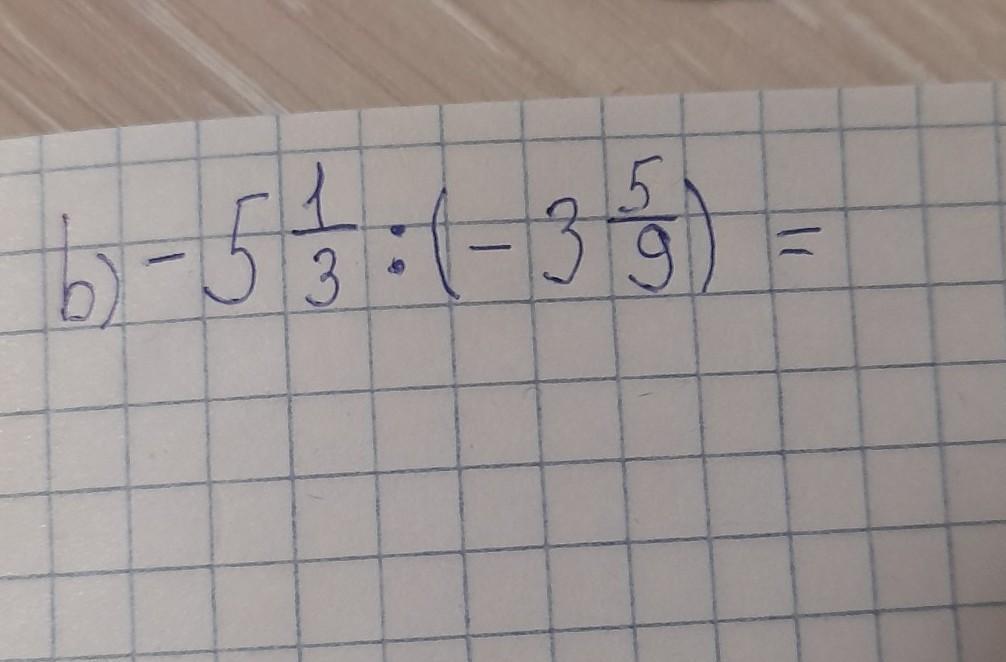 b) - 5 1/3 : (- 3 5/9) =